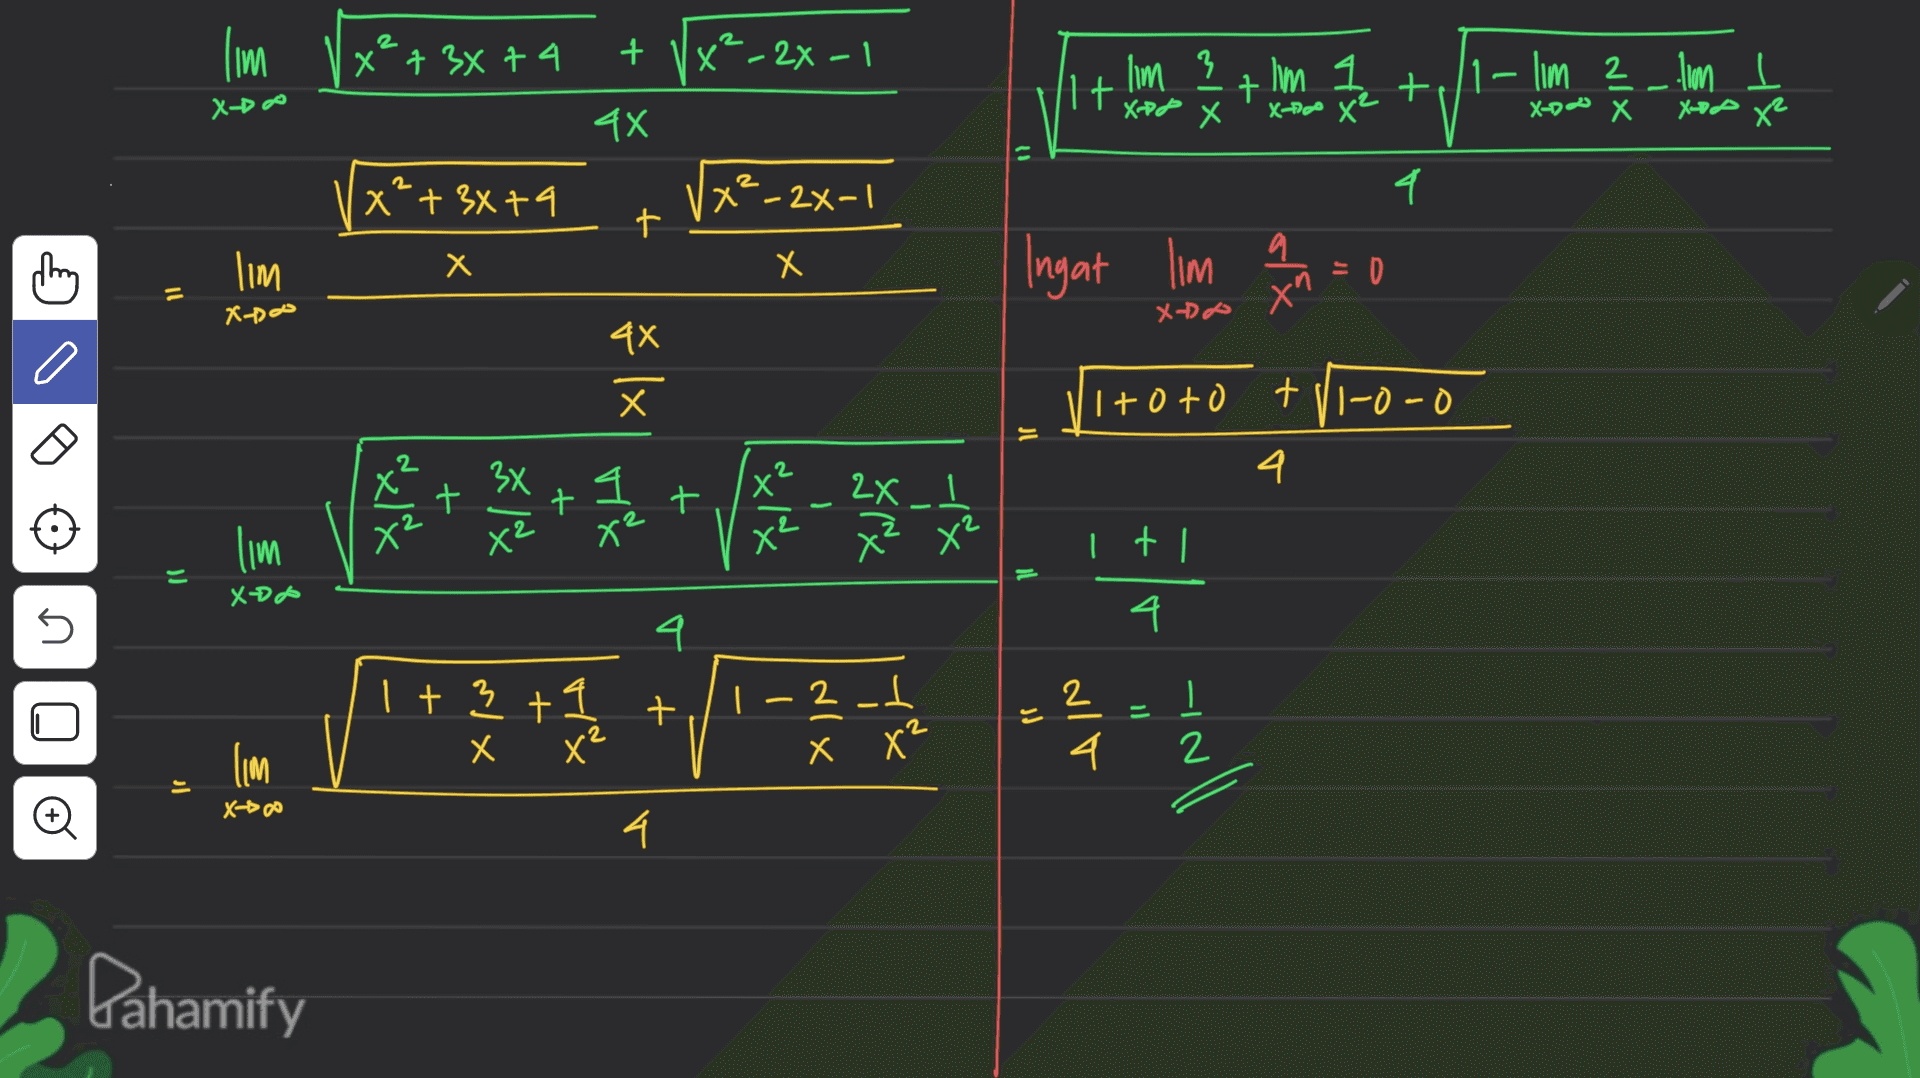 lim x→∞ (√(x² + 3x + 4) + √(x² - 2x - 1)) / 4x
= lim x→∞ (√(x² + 3x + 4) / x + √(x² - 2x - 1) / x) / (4x / x)
= lim x→∞ (√(x²/x² + 3x/x² + 4/x²) + √(x²/x² - 2x/x² - 1/x²)) / 4
= lim x→∞ (√(1 + 3/x + 4/x²) + √(1 - 2/x - 1/x²)) / 4
= (√(1 + lim x→∞ 3/x + lim x→∞ 4/x²) + √(1 - lim x→∞ 2/x - lim x→∞ 1/x²)) / 4
Ingat lim x→∞ a/xⁿ = 0
= (√(1+0+0) + √(1-0-0)) / 4
= (1 + 1) / 4
= 2/4 = 1/2
Pahamify